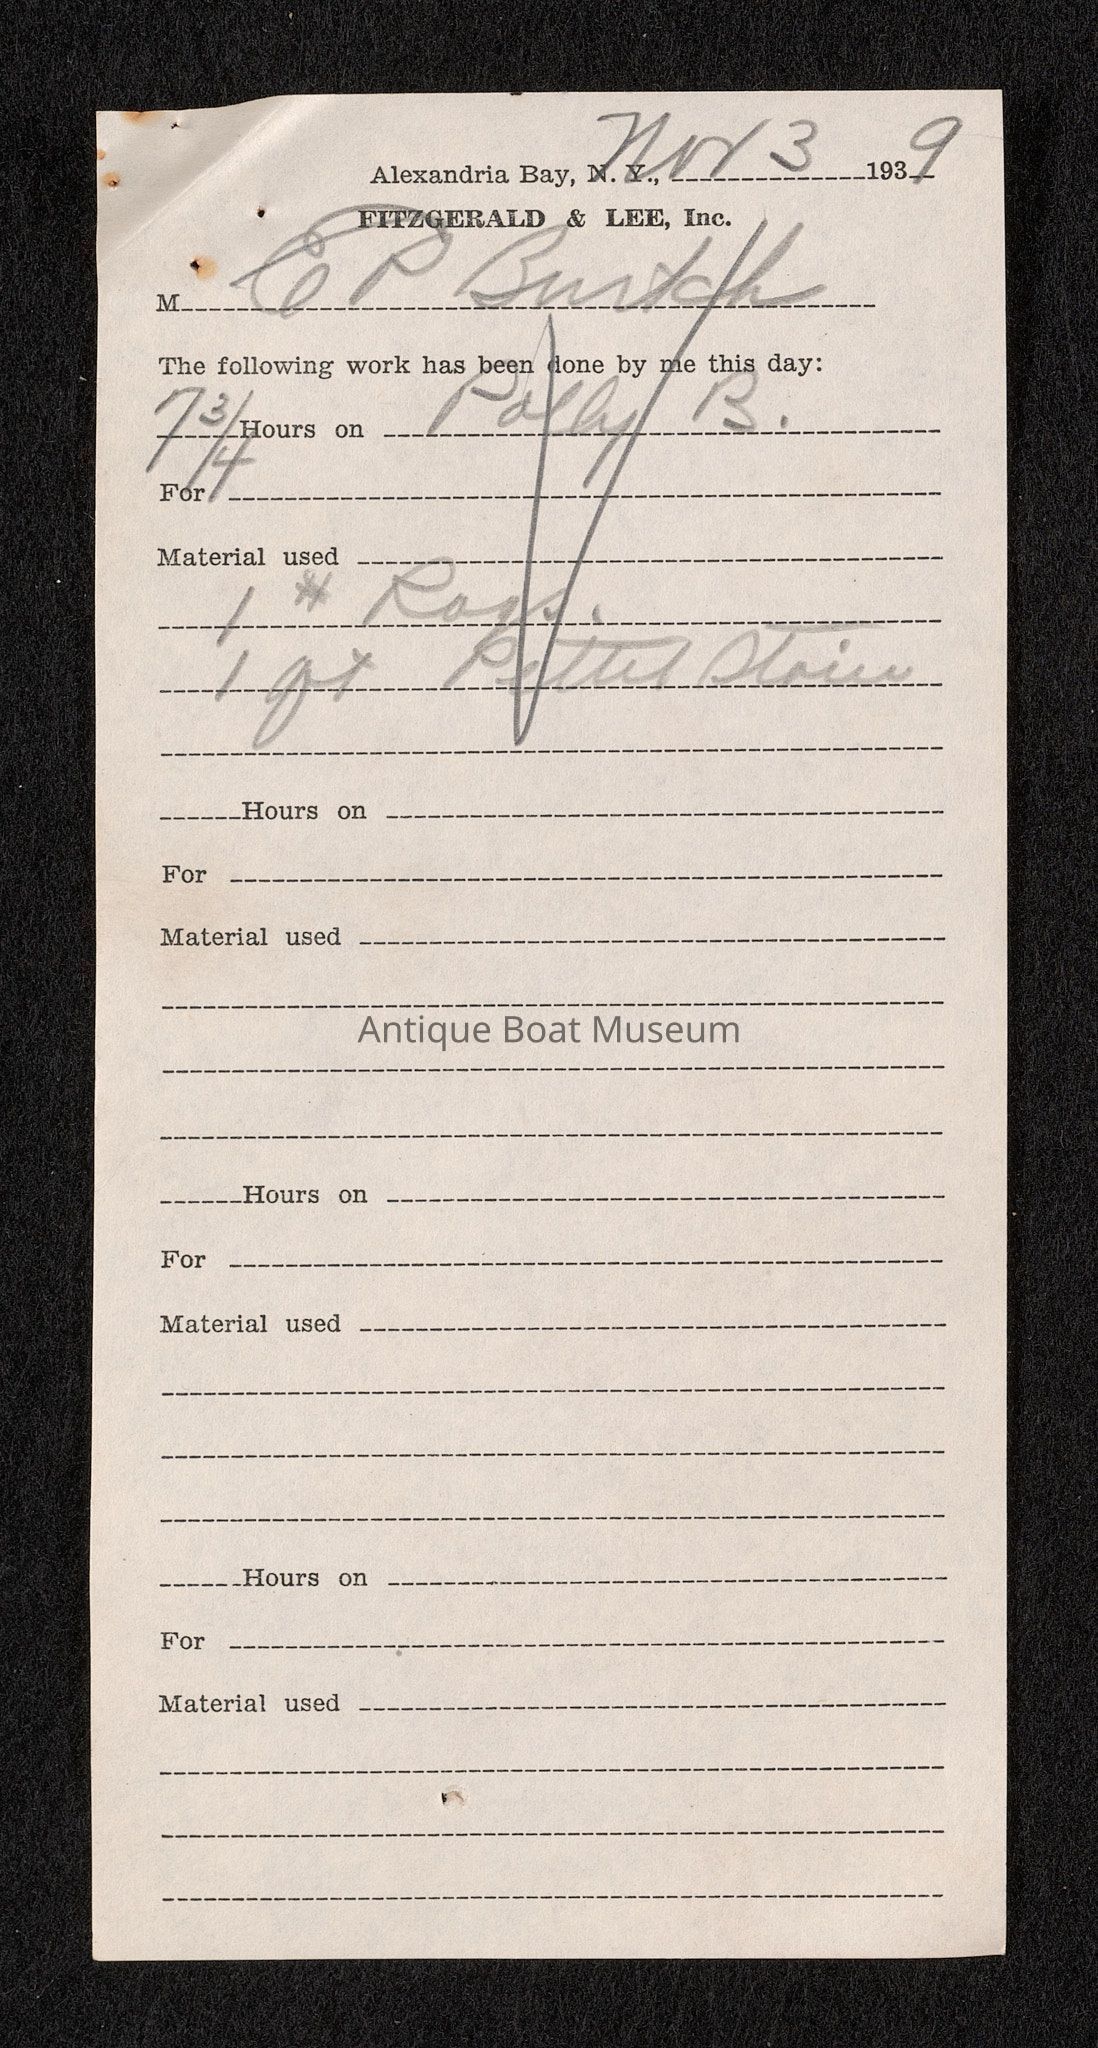 Alexandria Bay, N. Y., Nov 3 1939
FITZGERALD & LEE, Inc.
M E P Burtch
The following work has been done by me this day:
7 3/4 Hours on Polly B.
For
Material used
1 # Rags.
1 qt Stain
Hours on
For
Material used
Antique Boat Museum
Hours on
For
Material used
Hours on
For
Material used